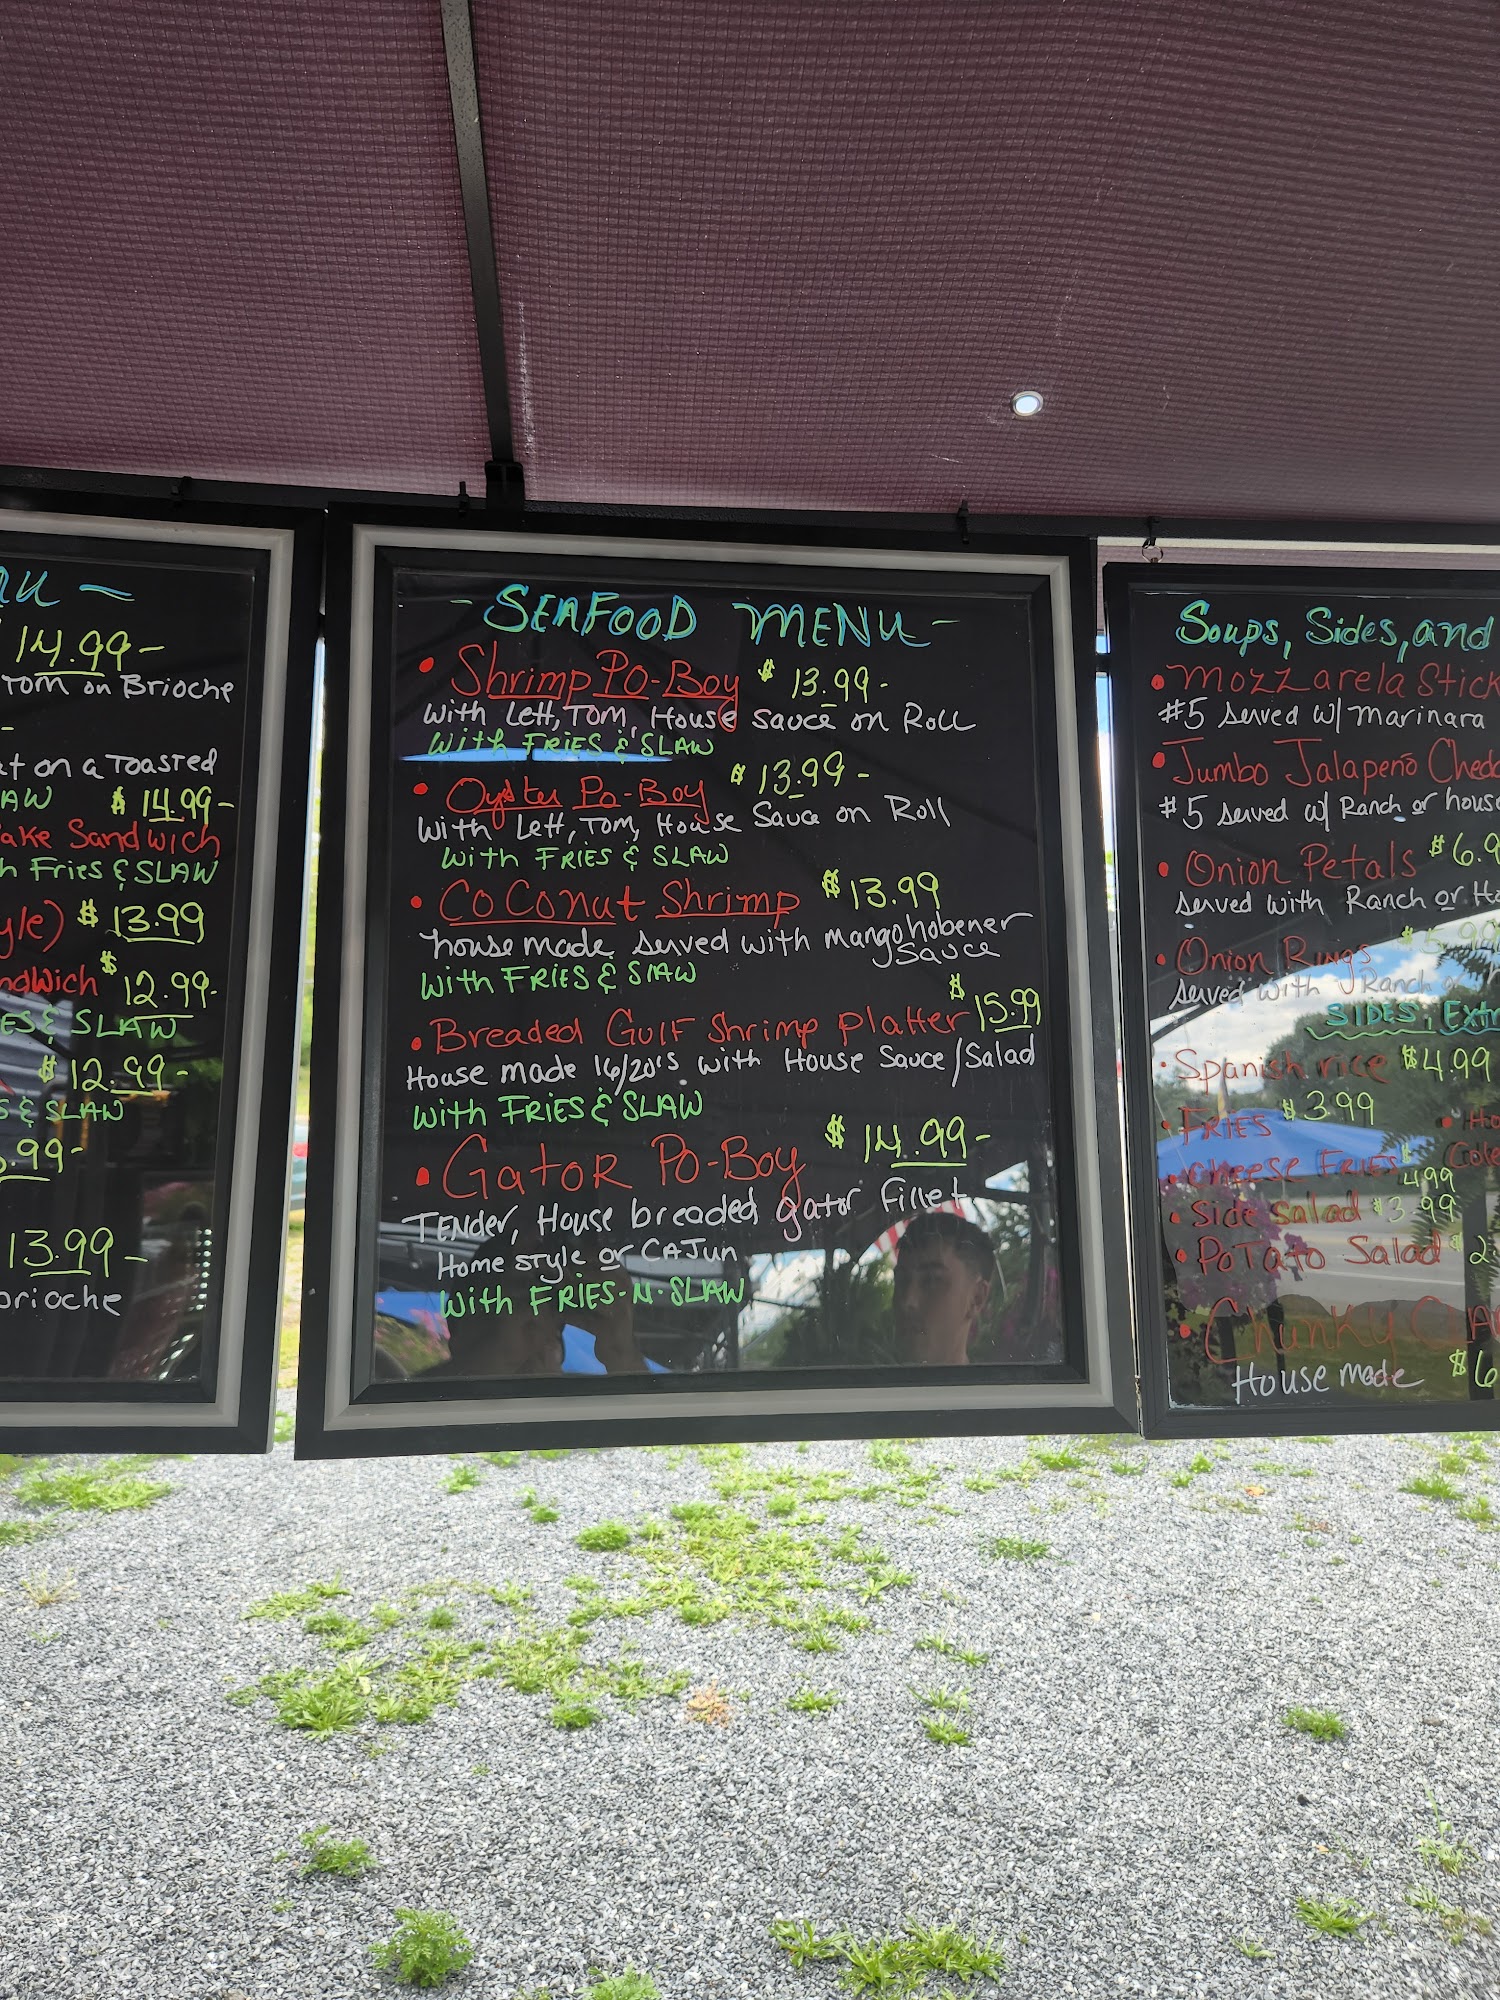 14.99-
TOM on BRIOCHE
on a TOASTED
$14.99-
ake Sandwich
Fries & SLAW
yle) $13.99
ndwich $12.99-
ES & SLAW
$12.99-
& SLAW
.99-
13.99-
brioche
- SEAFOOD MENU -
• Shrimp PO-BOY $13.99-
with Lett, TOM, House Sauce on Roll
with FRIES & SLAW
• Oyster Po-Boy $13.99-
with Lett, TOM, House Sauce on Roll
with FRIES & SLAW
• COCONut Shrimp $13.99
house made served with mango hobener
sauce
with FRIES & SLAW
• Breaded Gulf Shrimp platter $15.99
House made 16/20's with House Sauce/Salad
with FRIES & SLAW
• GatoR PO-BOY $14.99-
TENder, House breaded gator fillet
Home style or CAJun
with FRIES-N-SLAW
Soups, Sides, and
• Mozzarela Stick
#5 served w/ marinara
• Jumbo Jalapeño Chedd
#5 served w/ Ranch or house
• Onion Petals $6.9
served with Ranch or Ho
• Onion Rings $5.99
served with Ranch or
SIDES; Extr
• Spanish rice $4.99
• FRIES $3.99 • Ho
• Cheese FRIES $4.99 Cole
• Side Salad $3.99
• PoTaTo Salad $2.
• Chunky
House made $6